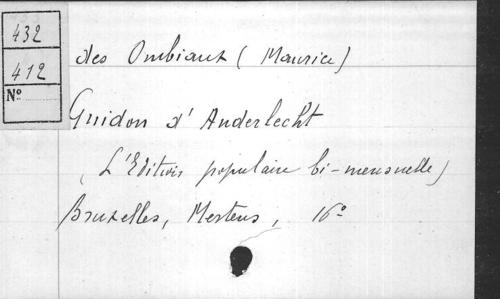 432
412
N°
des Ombiaux (Maurice)
Guidon d'Anderlecht
(L'Edition populaire bi-mensuelle)
Bruxelles, Mertens, 16°